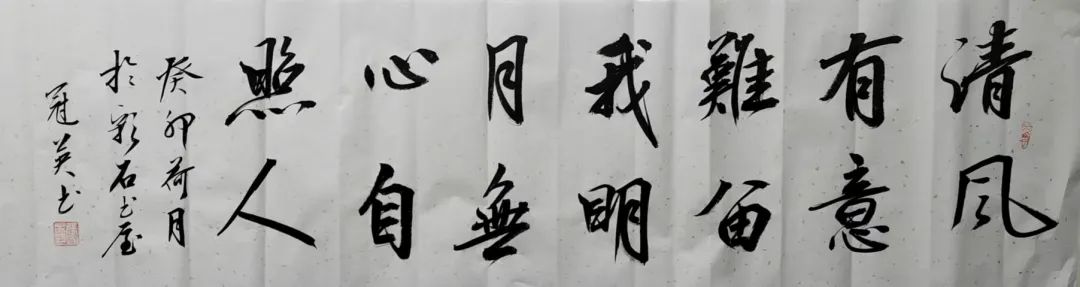 清风
有意
難留
我明
月無
心自
照人
癸卯荷月
於彩石書屋
冠英書